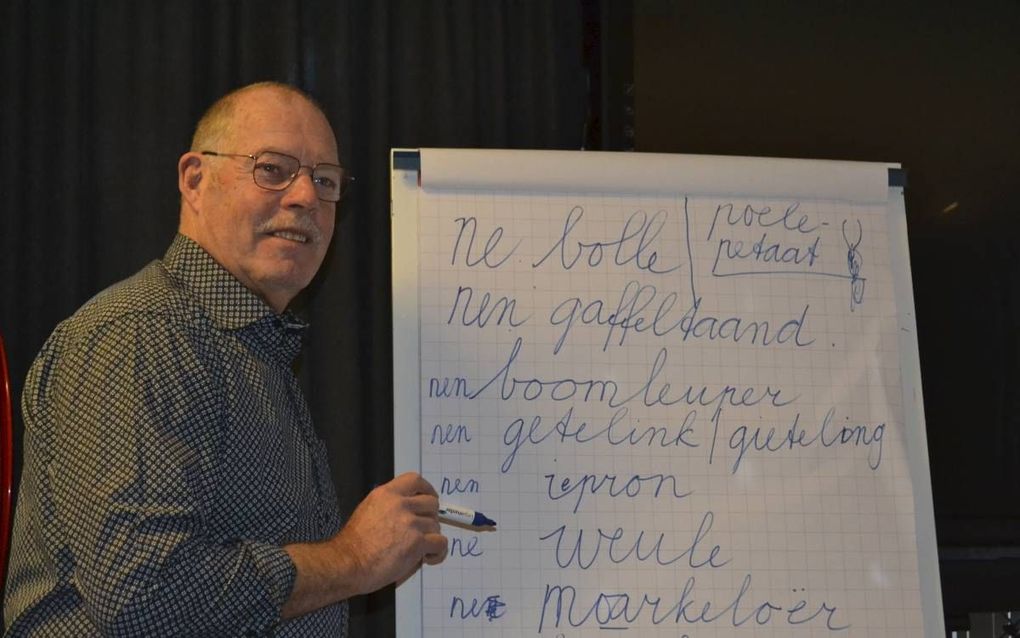 ne bolle
poele-
petaat
nen gaffeltaand.
nen boomleuper
nen getelink/gieteling
nen iepron
ne weule
ne moarkeloër